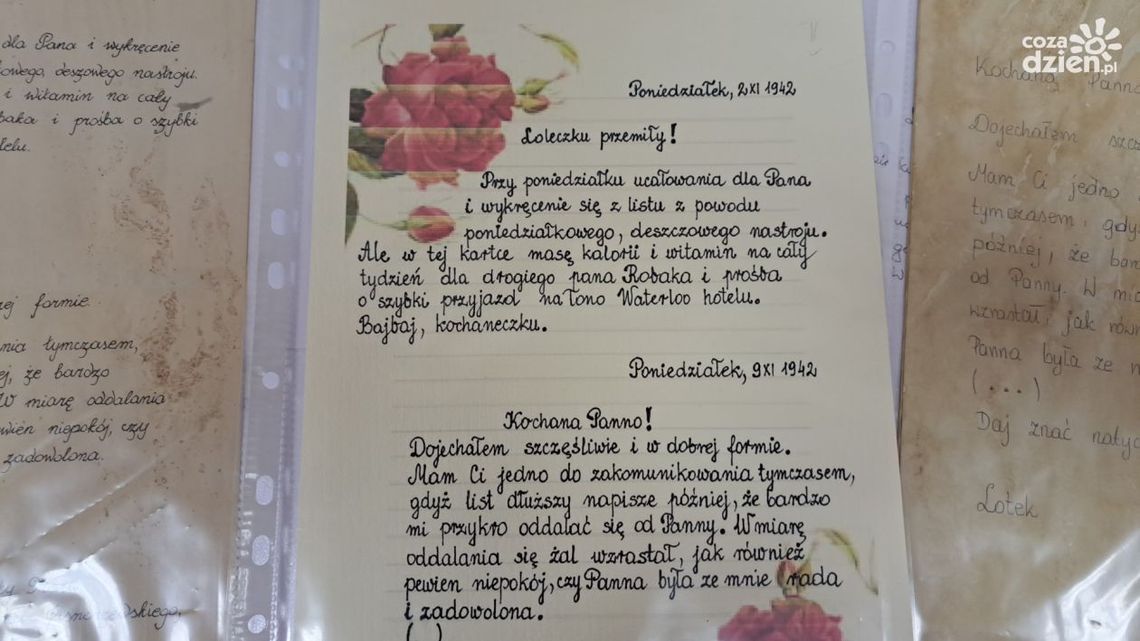 dla Pana i wykręcenie
deszowego nastroju.
i witamin na cały
i prośba o szybki
formie.
tymczasem,
że bardzo
W miarę oddalania
niepokój, czy
zadowolona.
Poniedziałek, 2 XI 1942
Loleczku przemiły!
Przy poniedziałku ucałowania dla Pana
i wykręcenie się z listu z powodu
poniedziałkowego, deszczowego nastroju.
Ale w tej kartce masę kalorii i witamin na cały
tydzień dla drogiego pana Robaka i prośba
o szybki przyjazd na łono Waterloo hotelu.
Bajbaj, kochaneczku.
Poniedziałek, 9 XI 1942
Kochana Panno!
Dojechałem szczęśliwie i w dobrej formie.
Mam Ci jedno do zakomunikowania tymczasem,
gdyż list dłuższy napisze później, że bardzo
mi przykro oddalać się od Panny. W miarę
oddalania się żal wzrastał, jak również
pewien niepokój, czy Panna była ze mnie rada
i zadowolona.
(
coza
dzień.pl
Kochana Panno
Dojechałem
Mam Ci jedno
tymczasem,
później, że
od Panny. W
wzrastał, jak
Panna była ze
(...)
Daj znać
Lotek